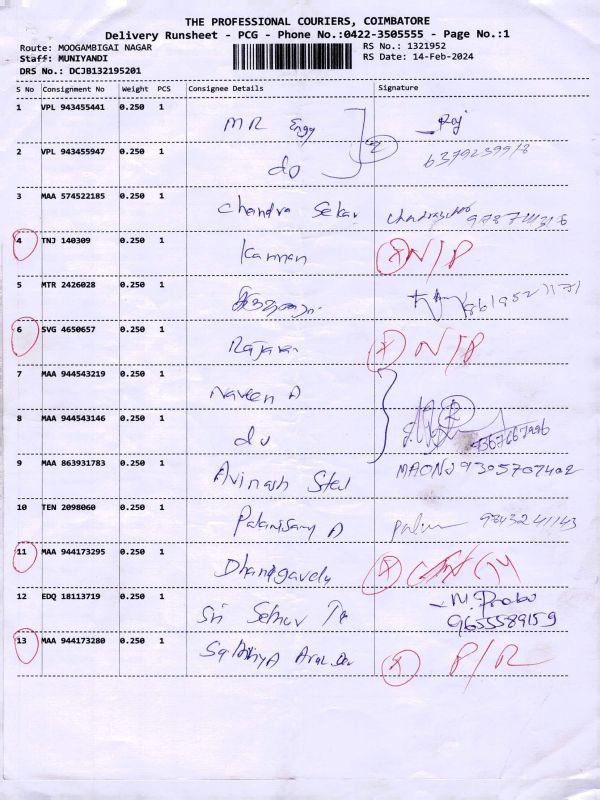 THE PROFESSIONAL COURIERS, COIMBATORE
Delivery Runsheet - PCG - Phone No.:0422-3505555 - Page No.:1
Route: MOOGAMBIGAI NAGAR RS No.: 1321952
Staff: MUNIYANDI RS Date: 14-Feb-2024
DRS No.: DCJB132195201
S No Consignment No Weight PCS Consignee Details Signature
1 VPL 943455441 0.250 1 MR Engg Raj
2 VPL 943455947 0.250 1 do 2
3 MAA 574522185 0.250 1 Chandra Sekar
4 TNJ 140309 0.250 1 Kannan X N/P
5 MTR 2426028 0.250 1
6 SVG 4650657 0.250 1 Rajavan X N/P
7 MAA 944543219 0.250 1 Naveen A
8 MAA 944543146 0.250 1 do 2
9 MAA 863931783 0.250 1 Avinash Steel 9305707402
10 TEN 2098060 0.250 1 Palanisamy A 9843241143
11 MAA 944173295 0.250 1 X
12 EDQ 18113719 0.250 1 Sri M. Prabu
9655589159
13 MAA 944173280 0.250 1 X P/R